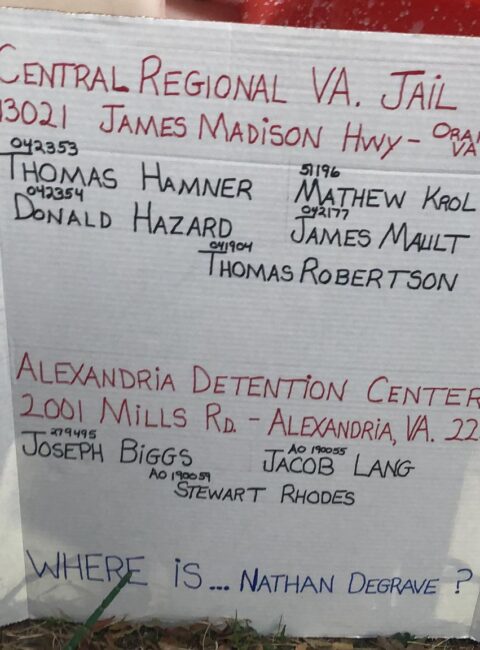 CENTRAL REGIONAL VA. JAIL
13021 JAMES MADISON HWY -
VA
042353 51196
THOMAS HAMNER MATHEW KROL
042354 042177
DONALD HAZARD JAMES MAULT
041904
THOMAS ROBERTSON
ALEXANDRIA DETENTION CENTER
2001 MILLS RD. - ALEXANDRIA, VA. 22
279495 AO 190055
JOSEPH BIGGS JACOB LANG
AO 190059
STEWART RHODES
WHERE IS... NATHAN DEGRAVE?